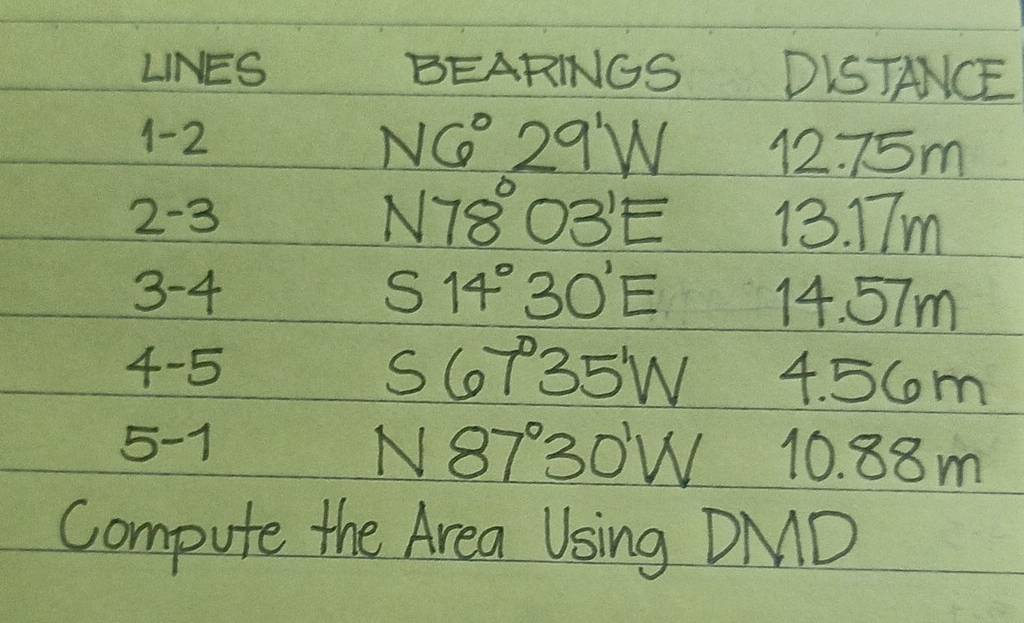 LINES BEARINGS DISTANCE
1-2 N6° 29'W 12.75m
2-3 N78° 03'E 13.17m
3-4 S 14° 30'E 14.57m
4-5 S 67° 35'W 4.56m
5-1 N 87° 30'W 10.88m
Compute the Area Using DMD